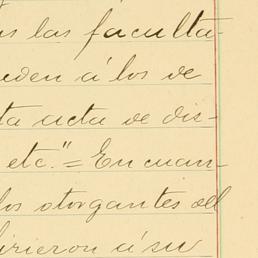 as las faculta-
eden á los de
ta acta de dis-
etc." = En cuan-
los otorgantes del
firieron á su